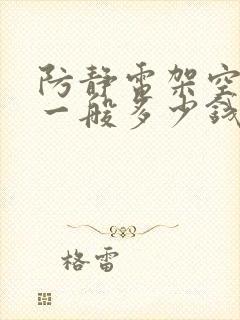 防静雷架空
一般多少钱
格雷